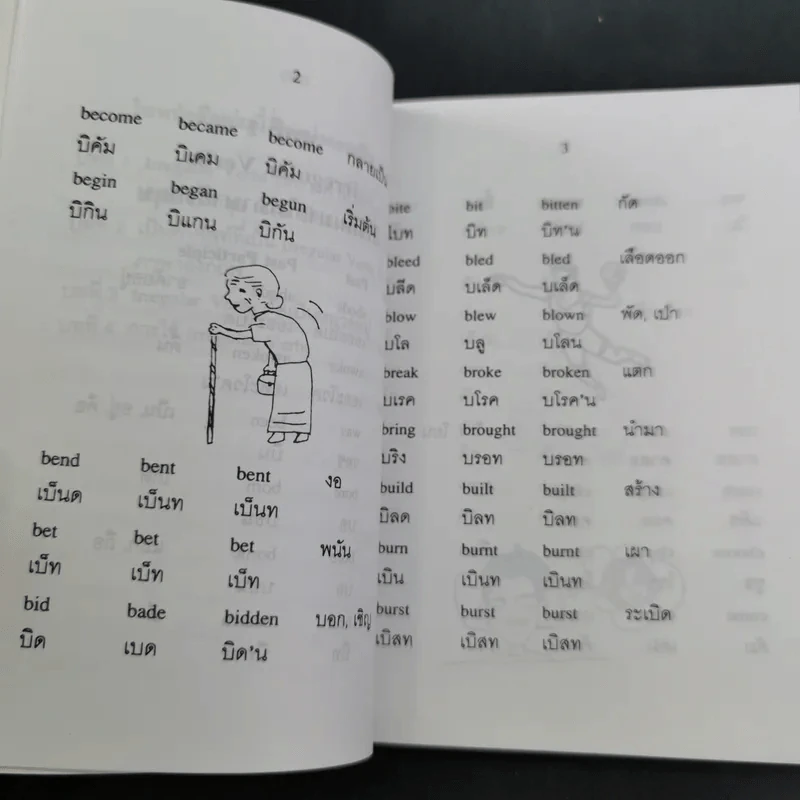 2
become became become กลายเป็น
บิคัม บิเคม บิคัม
begin began begun เริ่มต้น
บิกิน บิแกน บิกัน
bend bent bent งอ
เบ็นด เบ็นท เบ็นท
bet bet bet พนัน
เบ็ท เบ็ท เบ็ท
bid bade bidden บอก, เชิญ
บิด เบด บิด'น
3
bite bit bitten กัด
ไบท บิท บิท'น
bleed bled bled เลือดออก
บลีด บเล็ด บเล็ด
blow blew blown พัด, เป่า
บโล บลู บโลน
break broke broken แตก
บเรค บโรค บโรค'น
bring brought brought นำมา
บริง บรอท บรอท
build built built สร้าง
บิลด บิลท บิลท
burn burnt burnt เผา
เบิน เบินท เบินท
burst burst burst ระเบิด
เบิสท เบิสท เบิสท